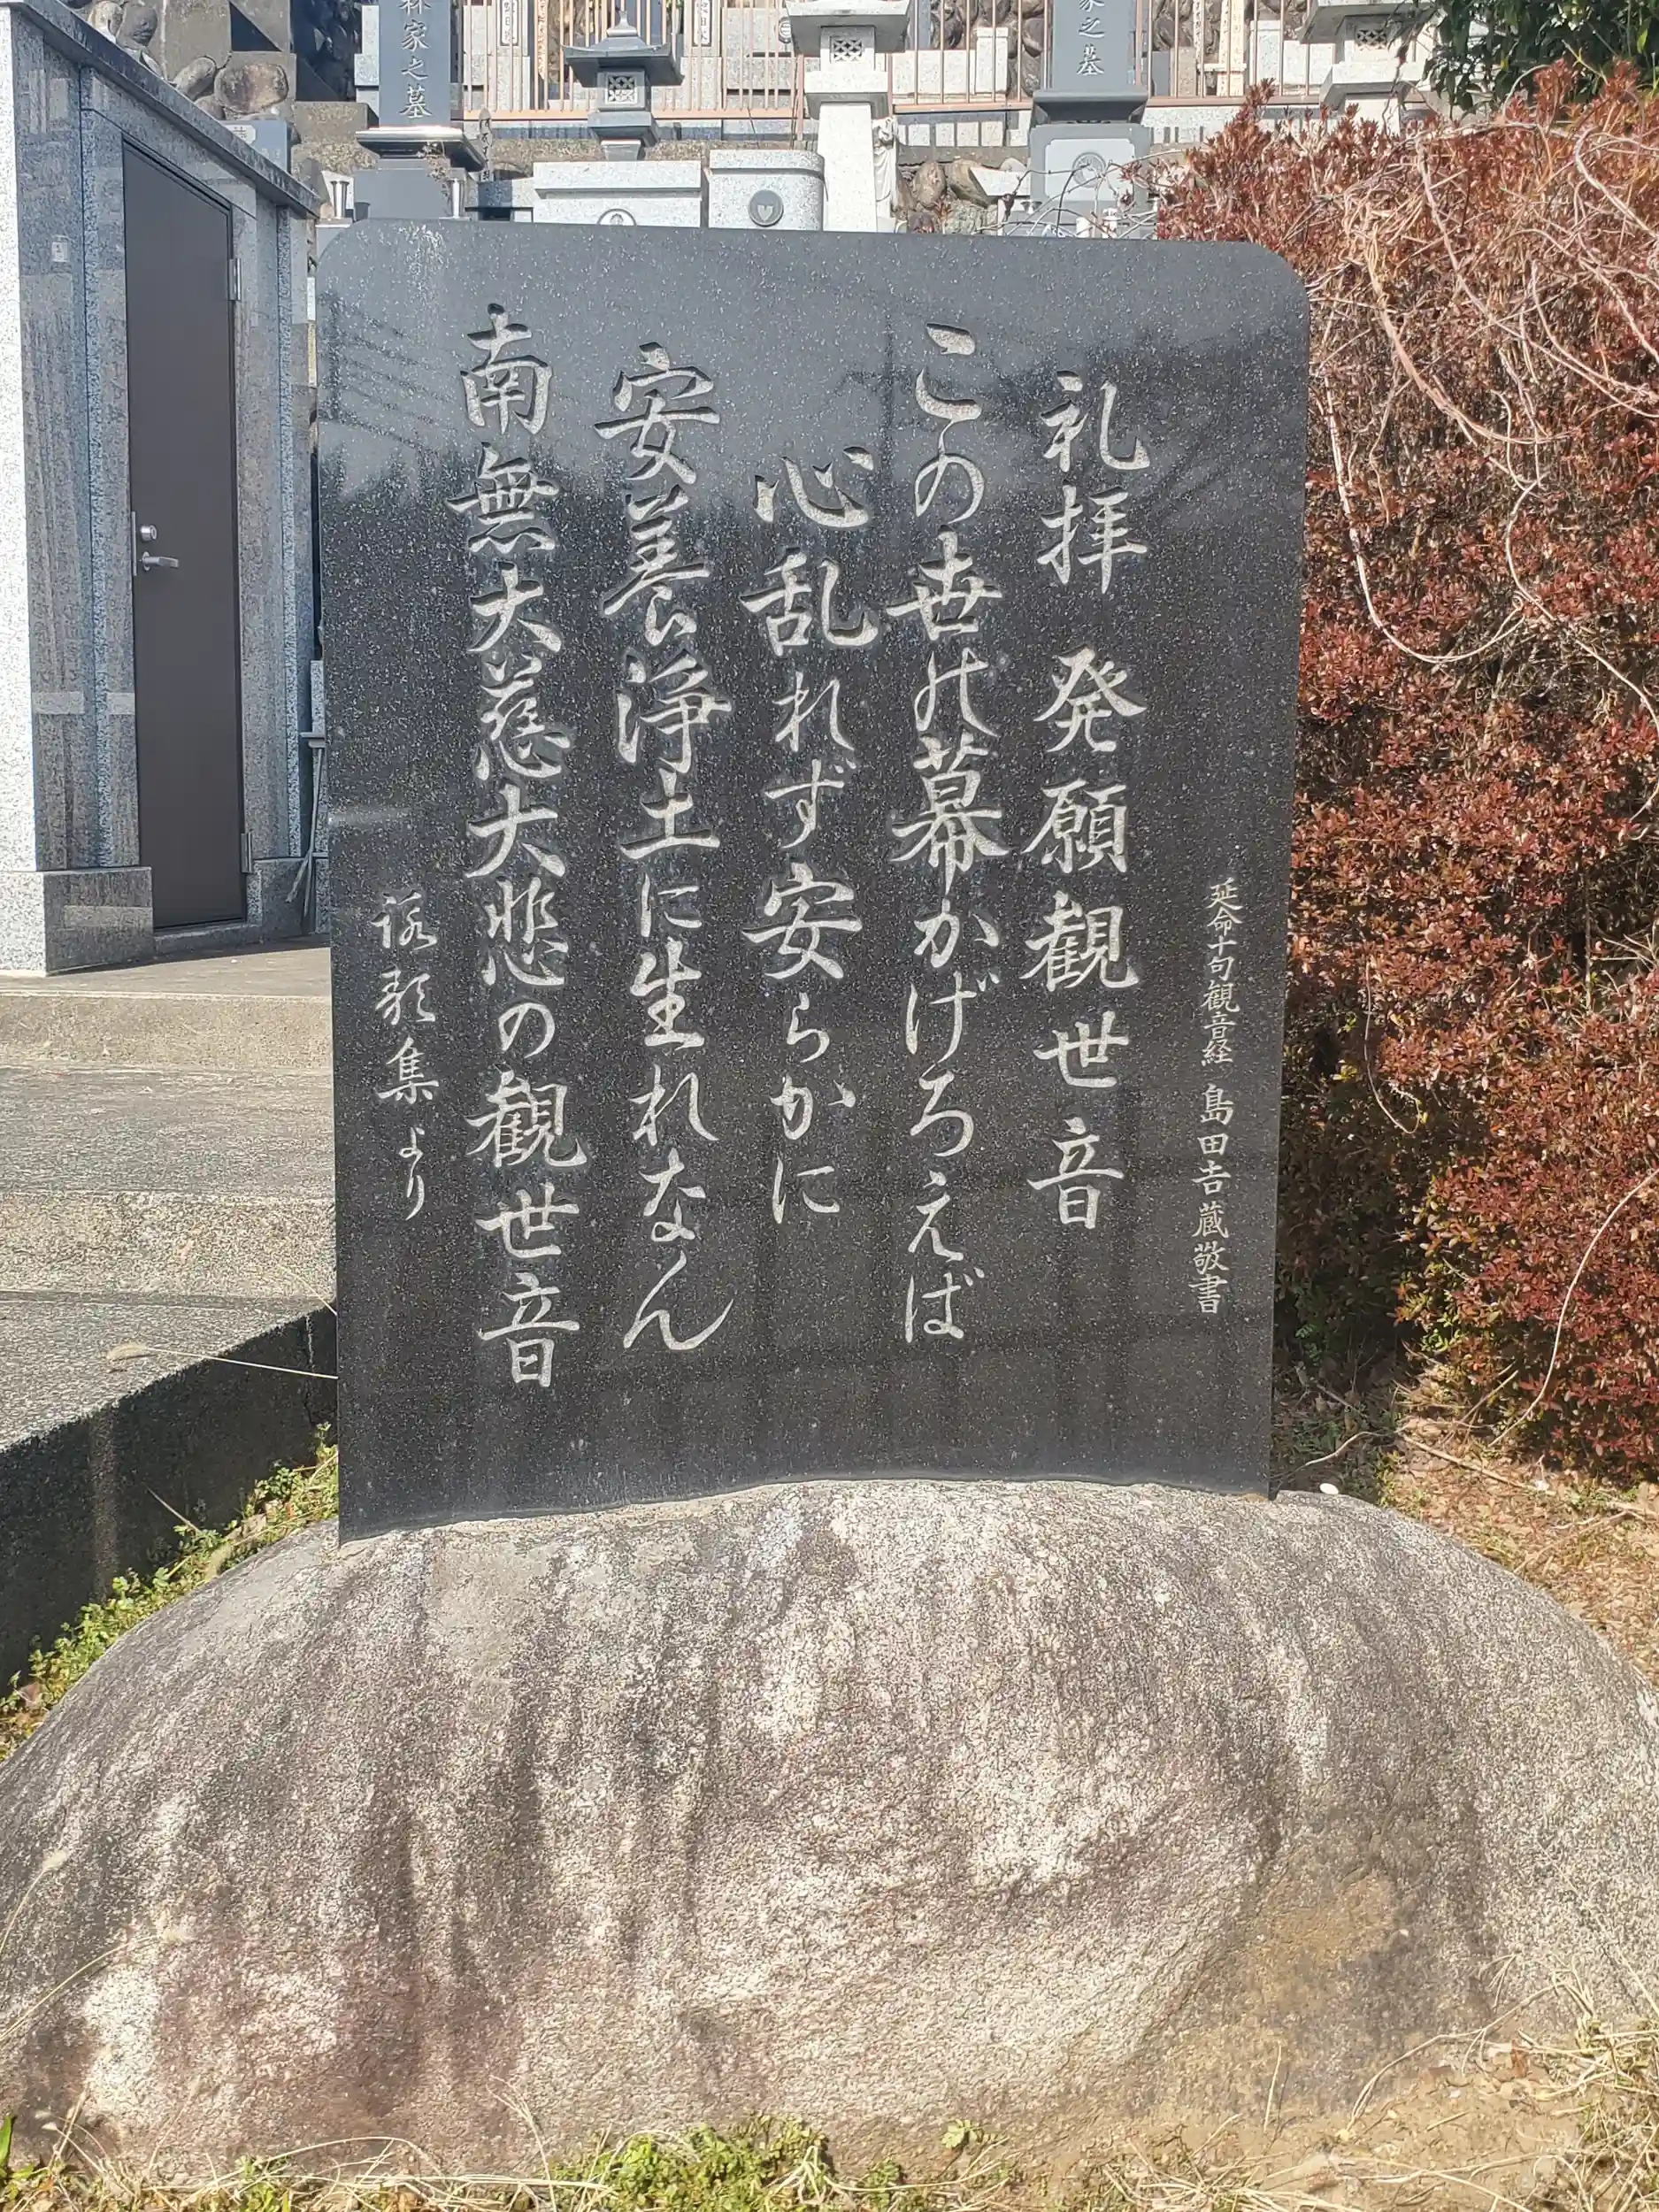 延命十句観音経 島田吉蔵敬書
礼拝 発願観世音
この世の幕かげろえば
心乱れず安らかに
安養浄土に生れなん
南無大慈大悲の観世音
詠歌集より
林家之墓
家之墓